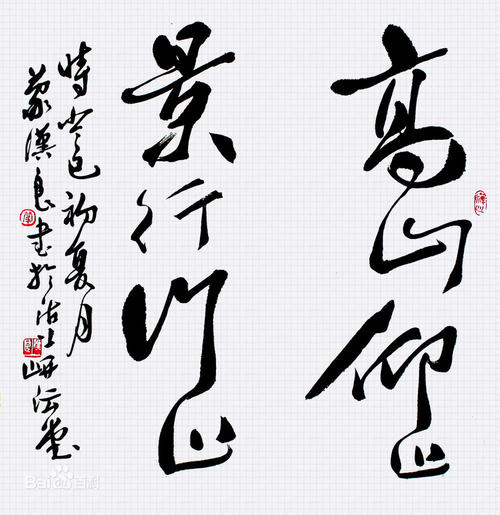 高山仰止
景行行止
時癸巳初夏月
蒙漢良書於沽上堂
Bai百科